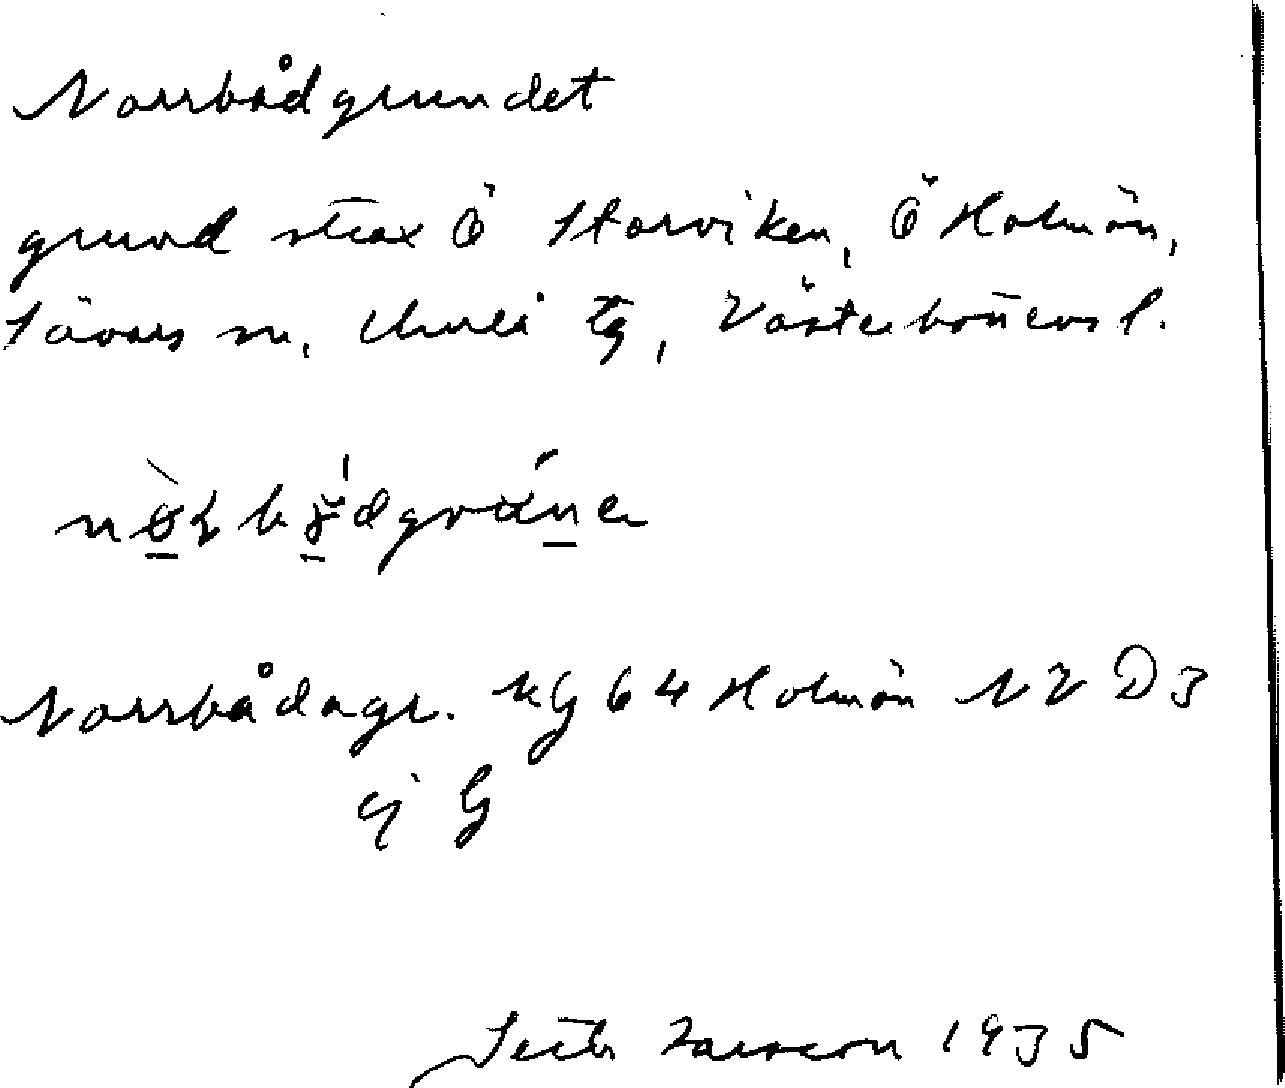 Norrbådgrundet
grund strax Ö Storviken, Ö Holmön,
Sävars sn, Umeå tg, Västerbottens l.
Norrbådagr. KG 64 Holmön NV D3
ej G
Seth Larsson 1935